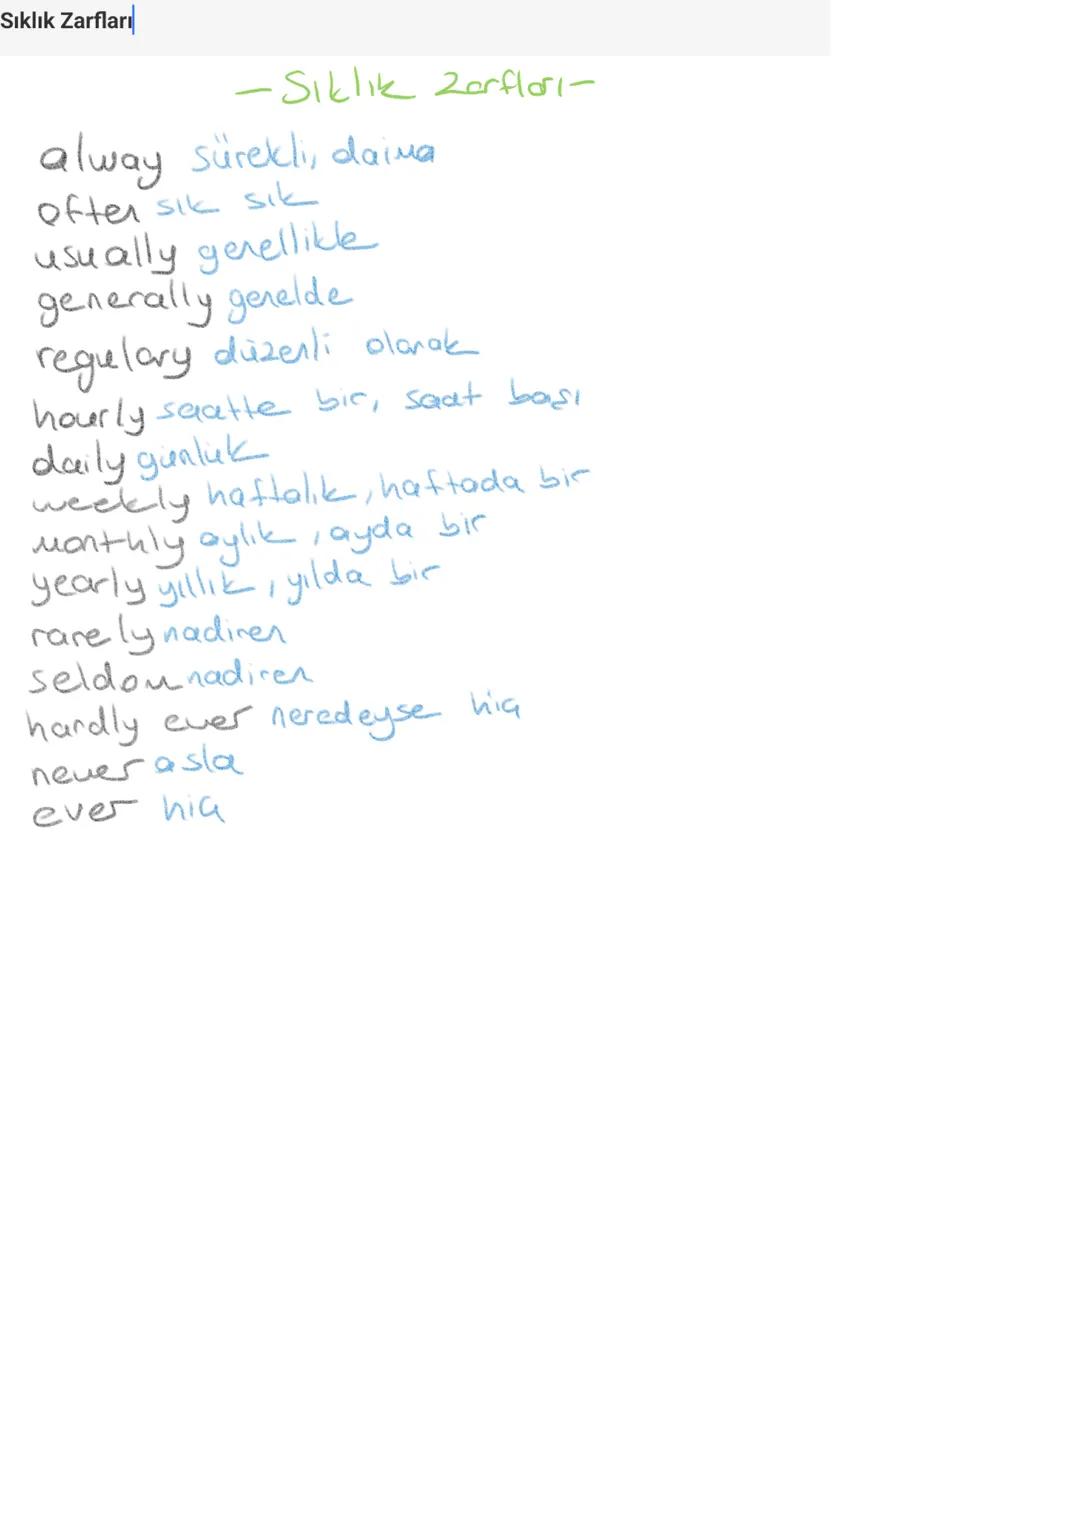 Sıklık Zarfları
- Sıklık Zarfları -
alway sürekli, daima
often sık sık
usually genellikle
generally genelde
regulary düzenli olarak
hourly saatte bir, saat başı
daily günlük
weekly haftalık, haftada bir
monthly aylık, ayda bir
yearly yıllık, yılda bir
rarely nadiren
seldom nadiren
hardly ever neredeyse hiç
never asla
ever hiç